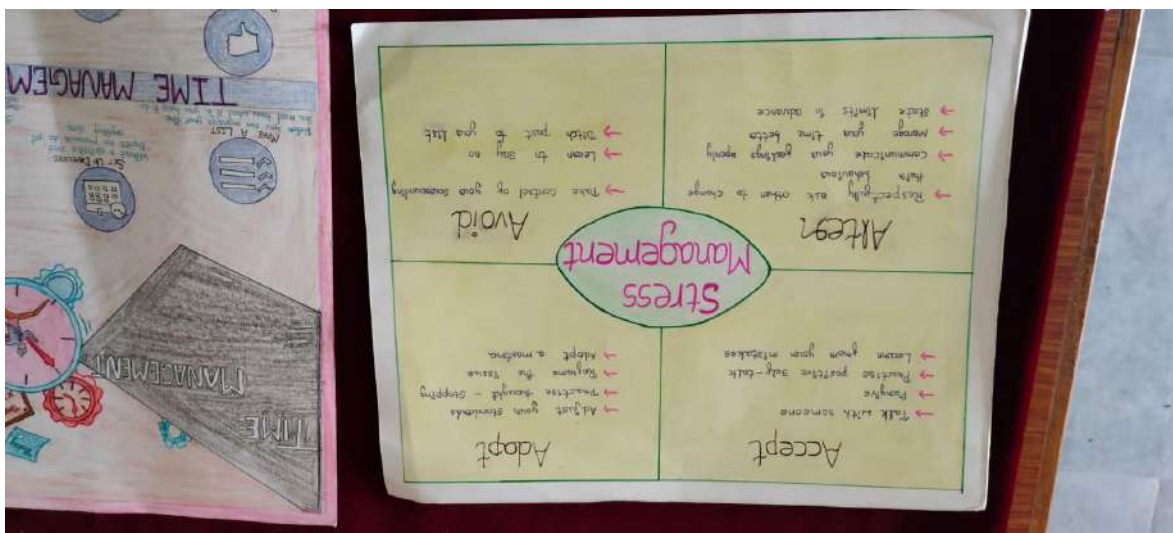 Accept
→ Talk with someone
→ Forgive
→ Practise positive self-talk
→ Learn from your mistakes
Adapt
→ Adjust your standards
→ Practise thought - stopping
→ Reframe the issue
→ Adopt a mantra
Stress
Management
Alter
→ Respectfully ask other to change
behaviour
→ Communicate your feelings openly
→ Manage your time better
→ State limits in advance
Avoid
→ Take control of your surrounding
→ Learn to say no
→ Ditch part to your list
TIME
MANAGEMENT
SET UP DEADLINES
MAKE A LIST
TIME MANAGEM